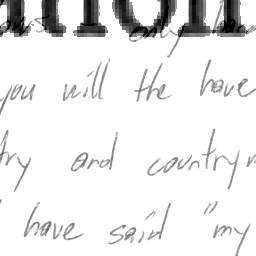 only
you will the have
try and country
have said "my